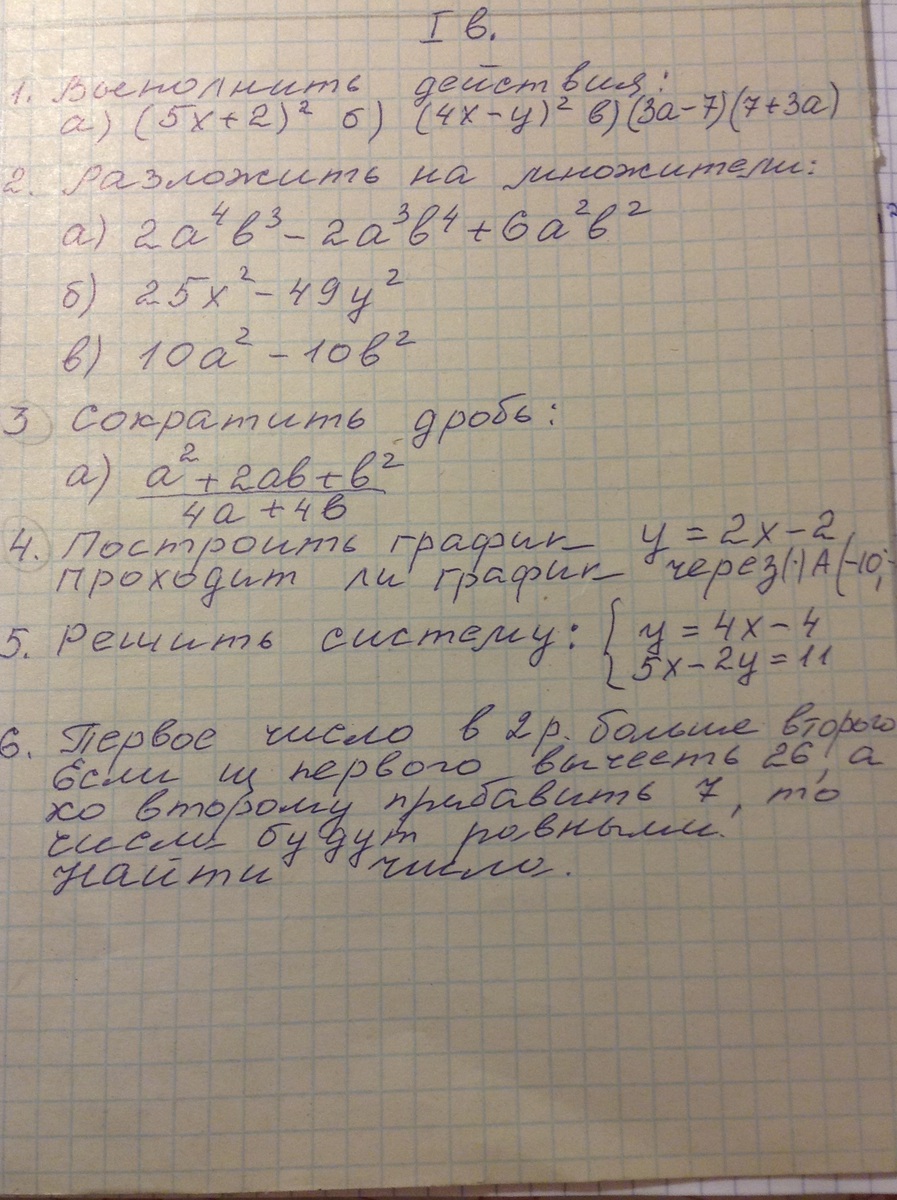 I в.
1. Выполнить действия:
а) (5x+2)² б) (4x-y)² в) (3a-7)(7+3a)
2. Разложить на множители:
а) 2a⁴b³ - 2a³b⁴ + 6a²b²
б) 25x² - 49y²
в) 10a² - 10b²
3 Сократить дробь:
а) a² + 2ab + b²
4a + 4b
4. Построить график y = 2x - 2,
проходит ли график через (·) A (-10;
5. Решить систему: { y = 4x - 4
5x - 2y = 11
6. Первое число в 2 р. больше второго
Если из первого вычесть 26, а
ко второму прибавить 7, то
числа будут равными.
Найти число.